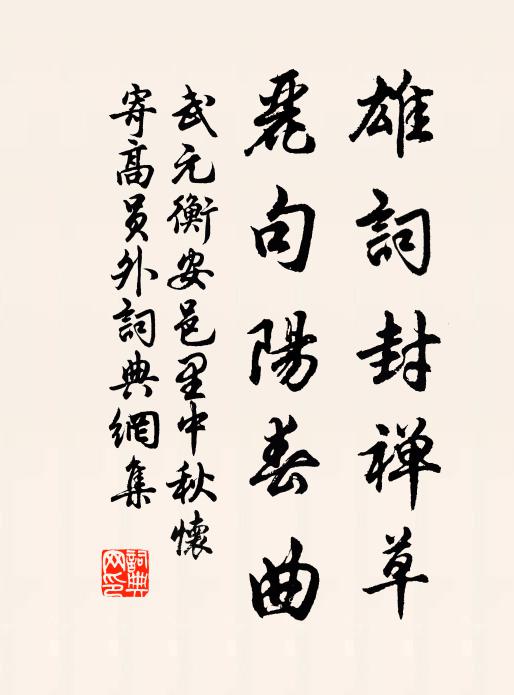 雄詞封禅草
麗句陽春曲
武元衡安邑里中秋懷
寄高員外詞典網集
詞典网印